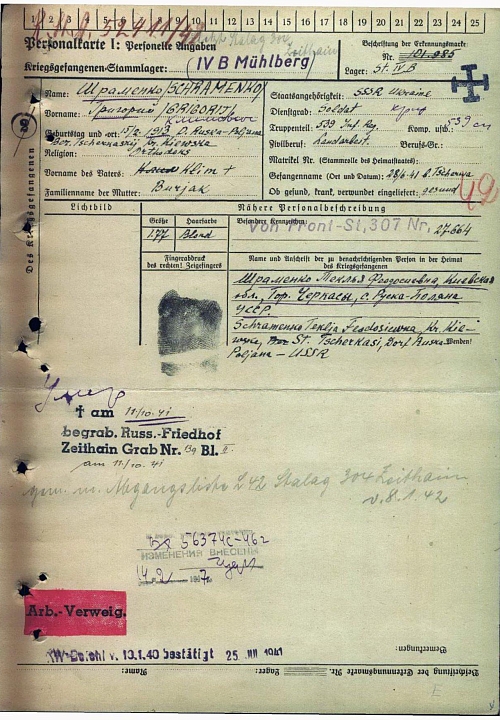 1 2 3 4 5 6 7 8 9 10 11 12 13 14 15 16 17 18 19 20 21 22 23 24 25
Personalkarte I: Personelle Angaben
Beschriftung der Erkennungsmarke:
Nr. 101.985
Kriegsgefangenen-Stammlager: IV B Mühlberg
Lager: St. IV B
Name: Шраменко/SCHRAMENKO
Staatsangehörigkeit: SSR Ukraine
Vorname: Григорий/GRIGORIJ
Dienstgrad: Soldat
Truppenteil: 539 Inf. Reg. Komp. usw.:
Geburtstag und -ort: 1913 D. Ruska-Poljana
Zivilberuf: Landarbeit. Berufs-Gr.:
Religion: Orthodoks
Matrikel Nr. (Stammrolle des Heimatstaates):
Vorname des Vaters: Klim +
Gefangennahme (Ort und Datum): 28/6.41
Familienname der Mutter: Burjak
Ob gesund, krank, verwundet eingeliefert: gesund
Des Kriegsgefangenen
Lichtbild
Nähere Personalbeschreibung
Größe Haarfarbe Besondere Kennzeichen:
1.77 Blond
Von Front-St, 307 Nr, 27664
Fingerabdruck
des rechten! Zeigefingers
Name und Anschrift der zu benachrichtigenden Person in der Heimat
des Kriegsgefangenen
Шраменко Текля Феодосиевна, Киевская
обл., Гор. Черкасы, с. Руска-Поляна
УССР.
Schramenko Teklja Feodosiewna, Kr. Kie-
St. Tscherkasi, Dorf Ruska-
Wenden!
Poljana - USSR
Умер
† am 11/10.41
begrab. Russ.-Friedhof
Zeithain Grab Nr. Bl. II.
am 11/10.41
gem. m. Abgangsliste Stalag 304 Zeithain
v. 8.1.42
ИЗМЕНЕНИЯ ВНЕСЕНЫ
Arb.-Verweig.
v. 13.1.40 bestätigt 25. JUL 1941
Bemerkungen:
Beschriftung der Erkennungsmarke Nr. Lager: Name: